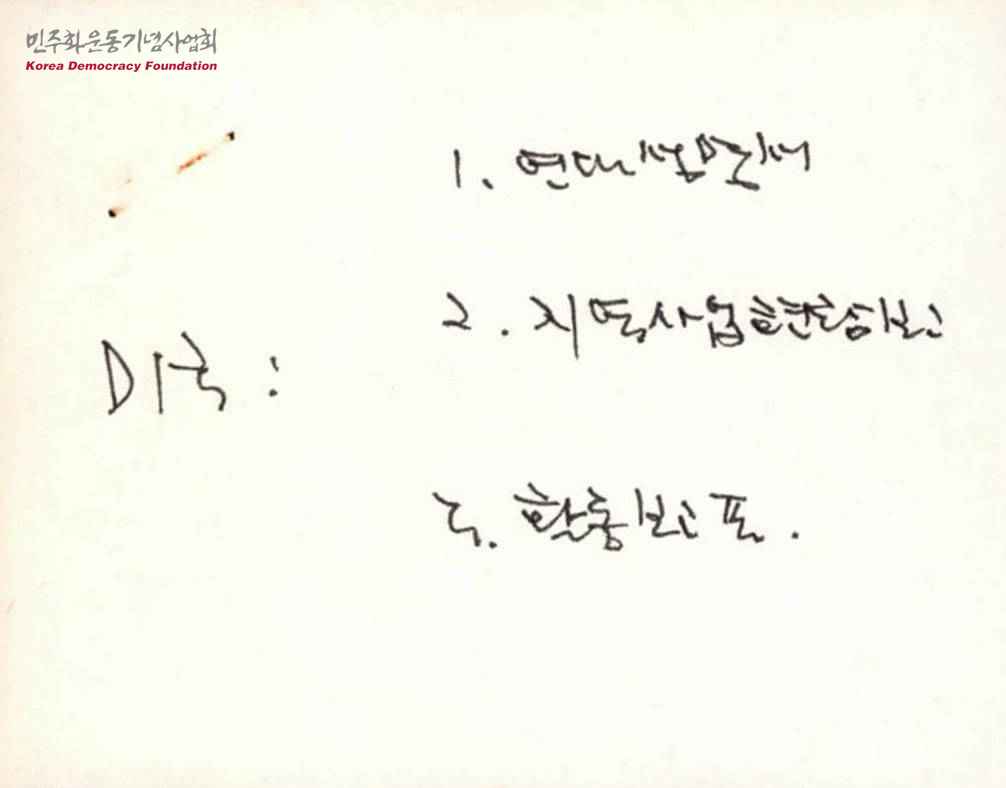 민주화운동기념사업회
Korea Democracy Foundation
1. 연대
2. 지역사업현황보고
미국 :
3. 활동보고표.